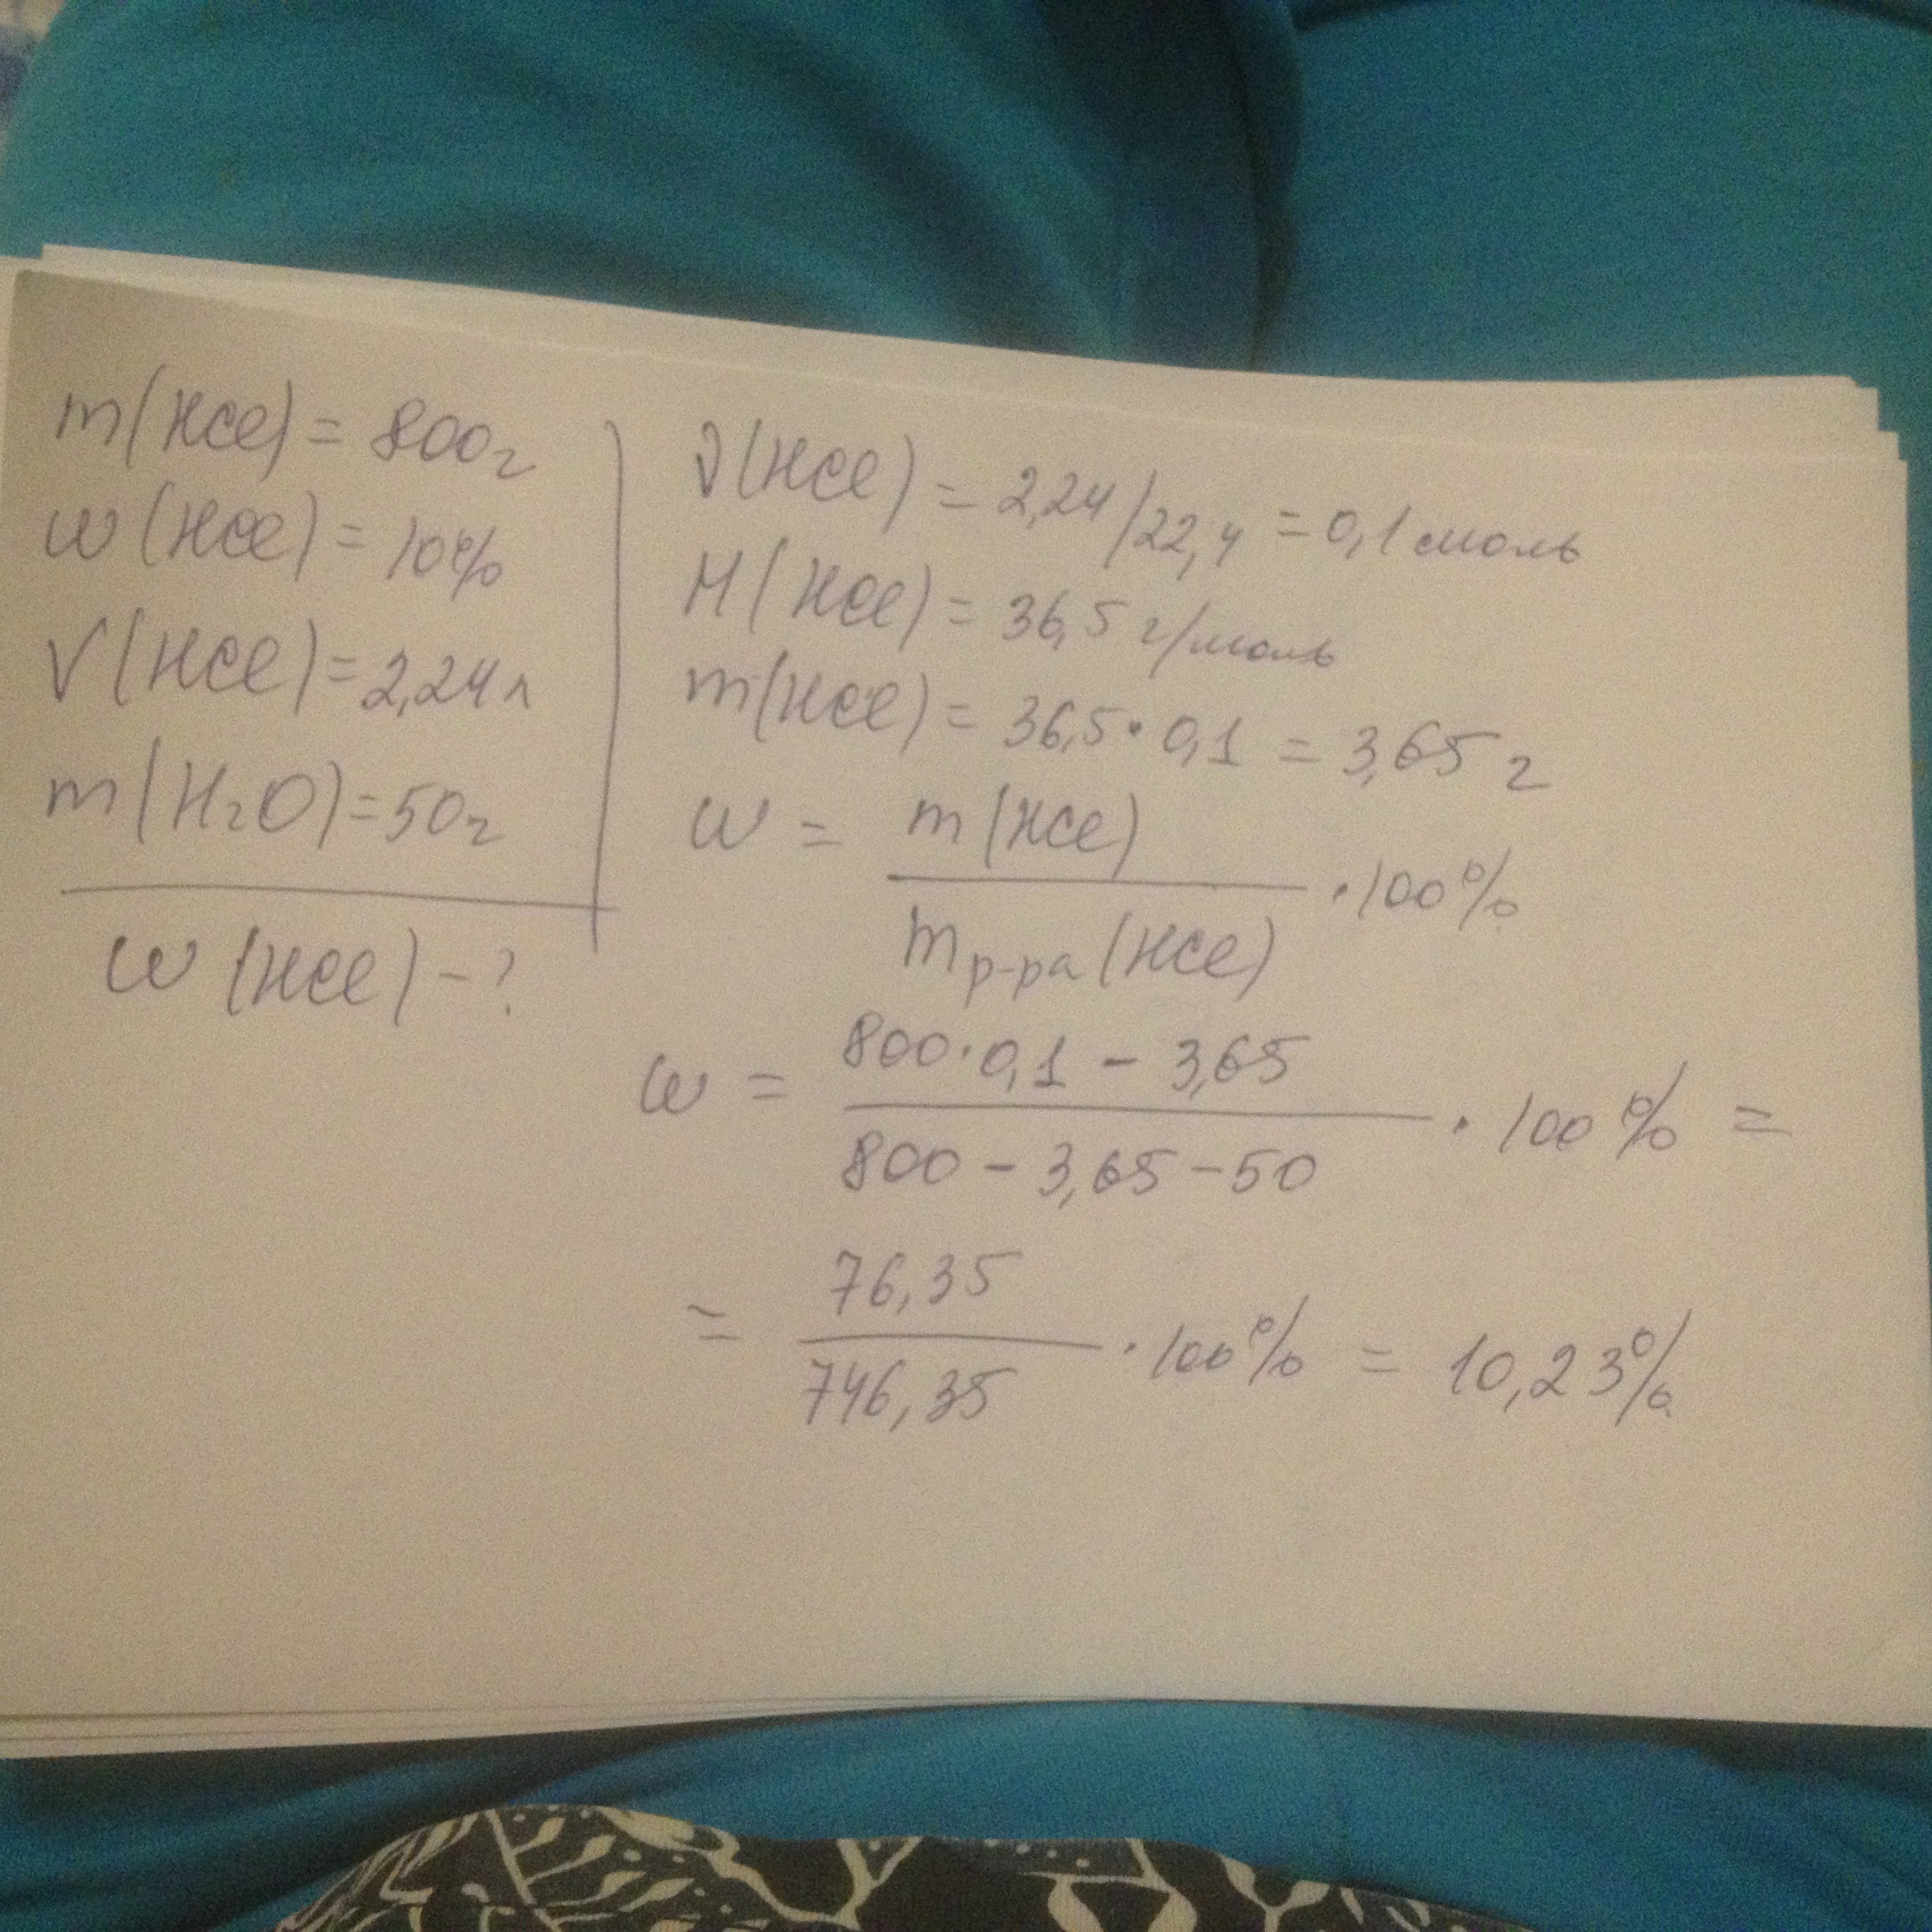 m(HCl) = 800 г
w(HCl) = 10%
V(HCl) = 2,24 л
m(H₂O) = 50 г
w(HCl) - ?
ν(HCl) = 2,24/22,4 = 0,1 моль
M(HCl) = 36,5 г/моль
m(HCl) = 36,5 · 0,1 = 3,65 г
w = m(HCl) / m р-ра(HCl) · 100%
w = 800·0,1 - 3,65 / 800 - 3,65 - 50 · 100% =
= 76,35 / 746,35 · 100% = 10,23%